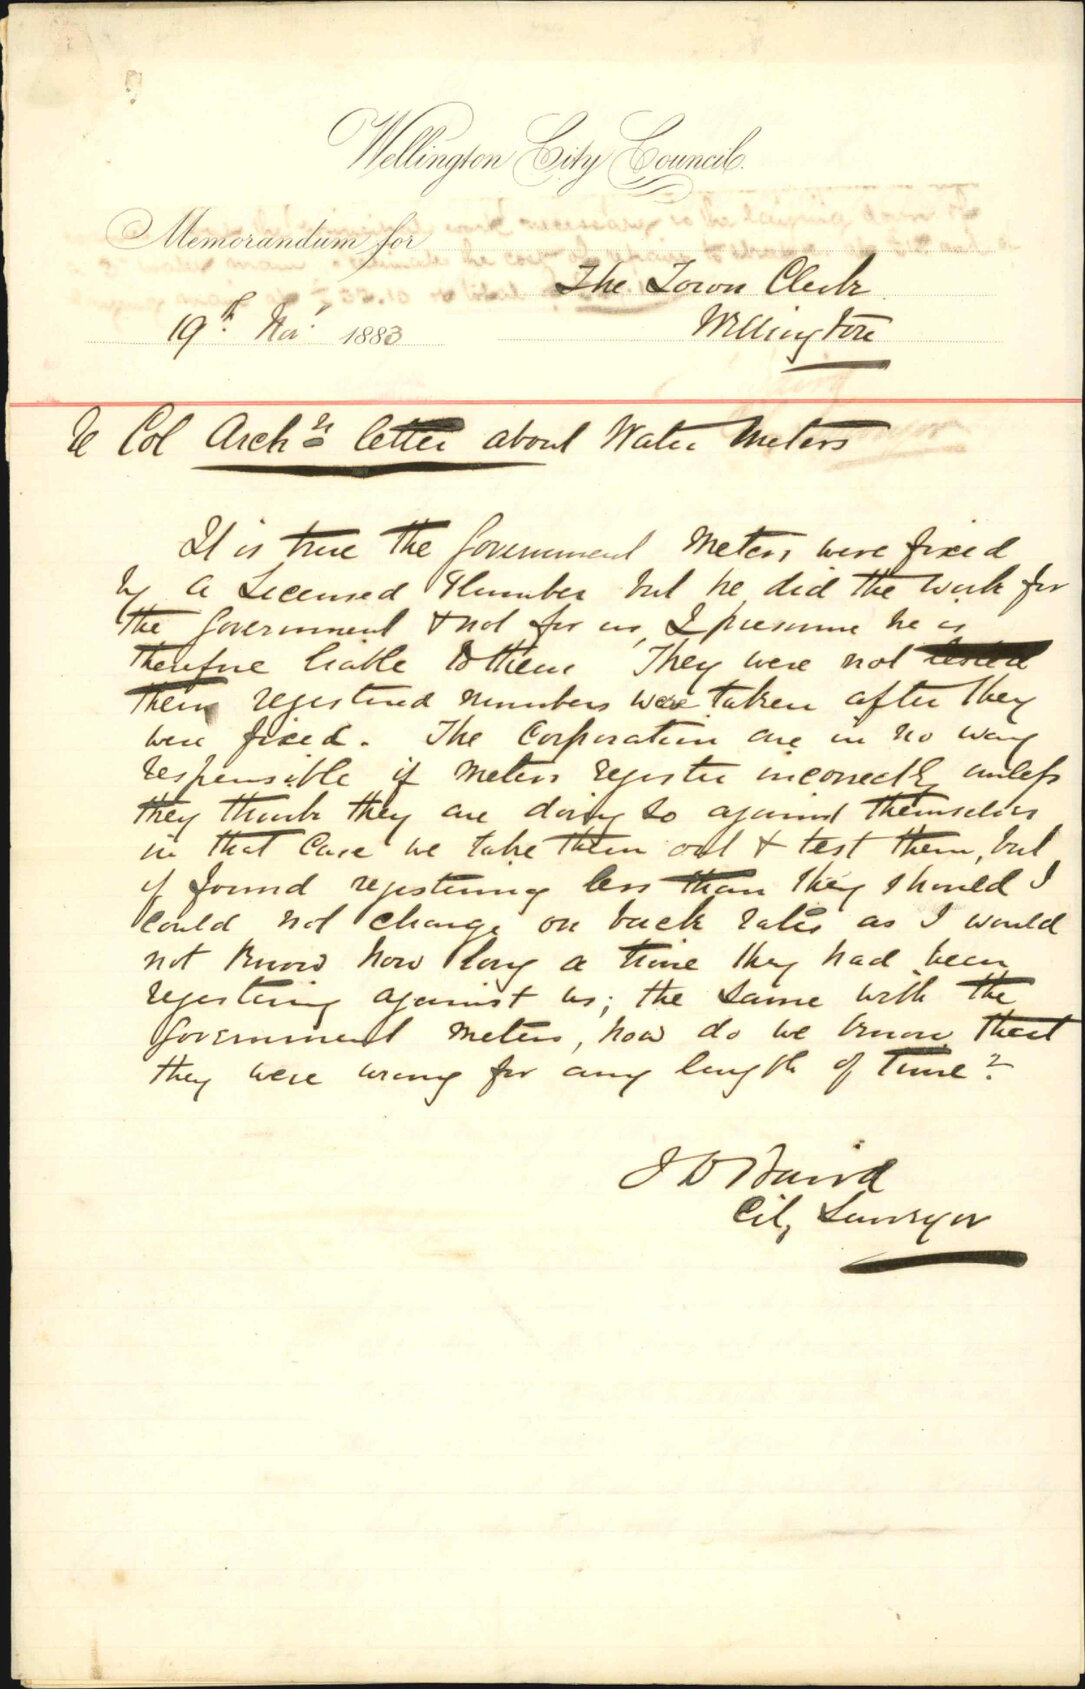 Wellington City Council.
Memorandum for
The Town Clerk
19th Nov' 1883 Wellington
Re Col Archts letter about Water Meters
It is true the Government Meters were fixed
by a Licensed Plumber but he did the work for
the Government & not for us, I presume he is
therefore liable to them They were not tested
their registered numbers were taken after they
were fixed. The Corporation are in no way
responsible if meters register incorrectly unless
they think they are doing so against themselves
in that Case we take them out & test them, but
if found registering less than they should I
could not charge on back rates as I would
not know how long a time they had been
registering against us; the same with the
Government meters, how do we know that
they were wrong for any length of time?
J D Baird
City Surveyor